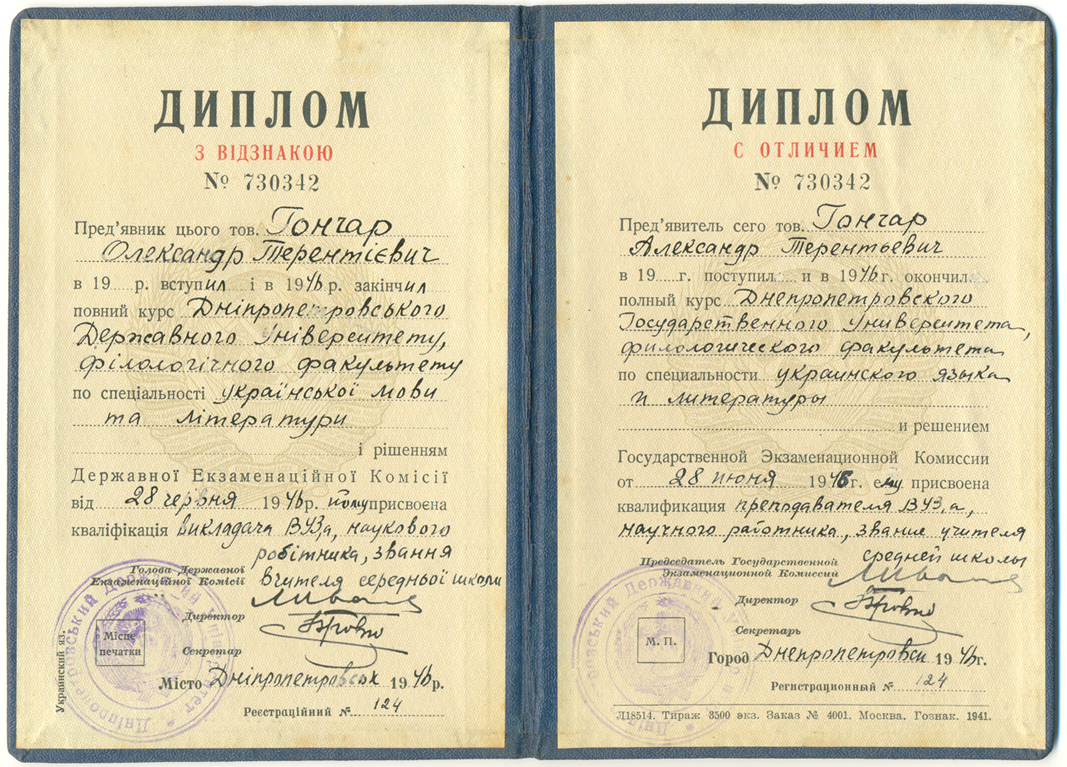 ДИПЛОМ
З ВІДЗНАКОЮ
№ 730342
Пред’явник цього тов. Гончар
Олександр Терентієвич
в 19 р. вступил і в 1946 р. закінчил
повний курс Дніпропетровського
Державного Університету,
філологічного факультету
по спеціальності української мови
та літератури
і рішенням
Державної Екзаменаційної Комісії
від 28 червня 1946 р. йому присвоєна
кваліфікація викладача ВУЗ,а, наукового
робітника, звання
вчителя середньої школи
Голова Державної
Екзаменаційної Комісії
Директор
Місце
печатки
Секретар
Місто Дніпропетровськ 1946 р.
Реєстраційний № 124
Украинский яз.
ДИПЛОМ
С ОТЛИЧИЕМ
№ 730342
Пред’явитель сего тов. Гончар
Александр Терентьевич
в 19 г. поступил и в 1946 г. окончил
полный курс Днепропетровского
Государственного Университета,
филологического факультета
по специальности украинского языка
и литературы
и решением
Государственной Экзаменационной Комиссии
от 28 июня 1946 г. ему присвоена
квалификация преподавателя ВУЗ,а,
научного работника, звание учителя
средней школы
Председатель Государственной
Экзаменационной Комиссий
Директор
М. П.
Секретарь
Город Днепропетровск 1946 г.
Регистрационный № 124
Л18514. Тираж 3500 экз. Заказ № 4001. Москва. Гознак. 1941.